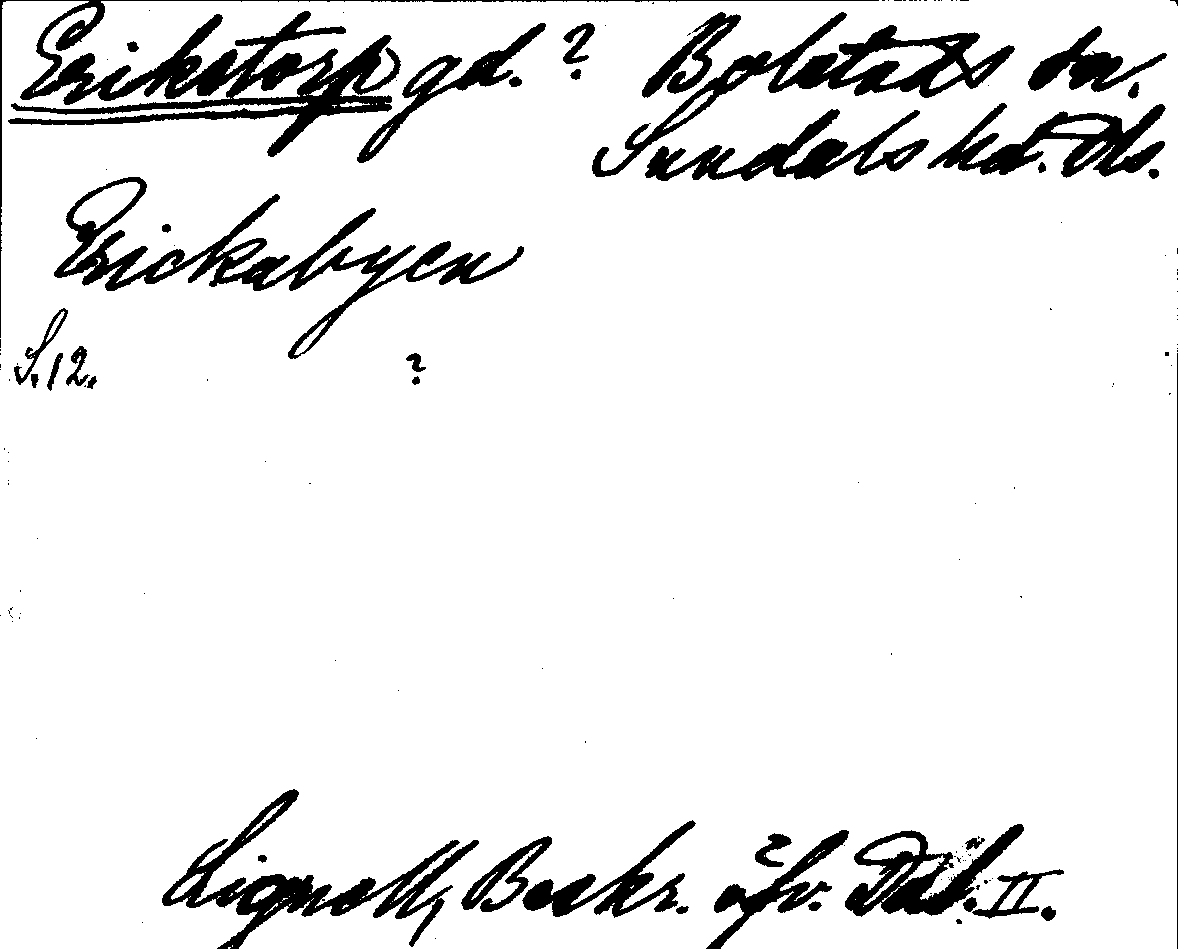 Erikstorp gd. ? Bolstads sn.
Sundals hd. Dls.
Erickabyen
S. 12. ?
Lignell, Beskr. öfv. Dal. II.